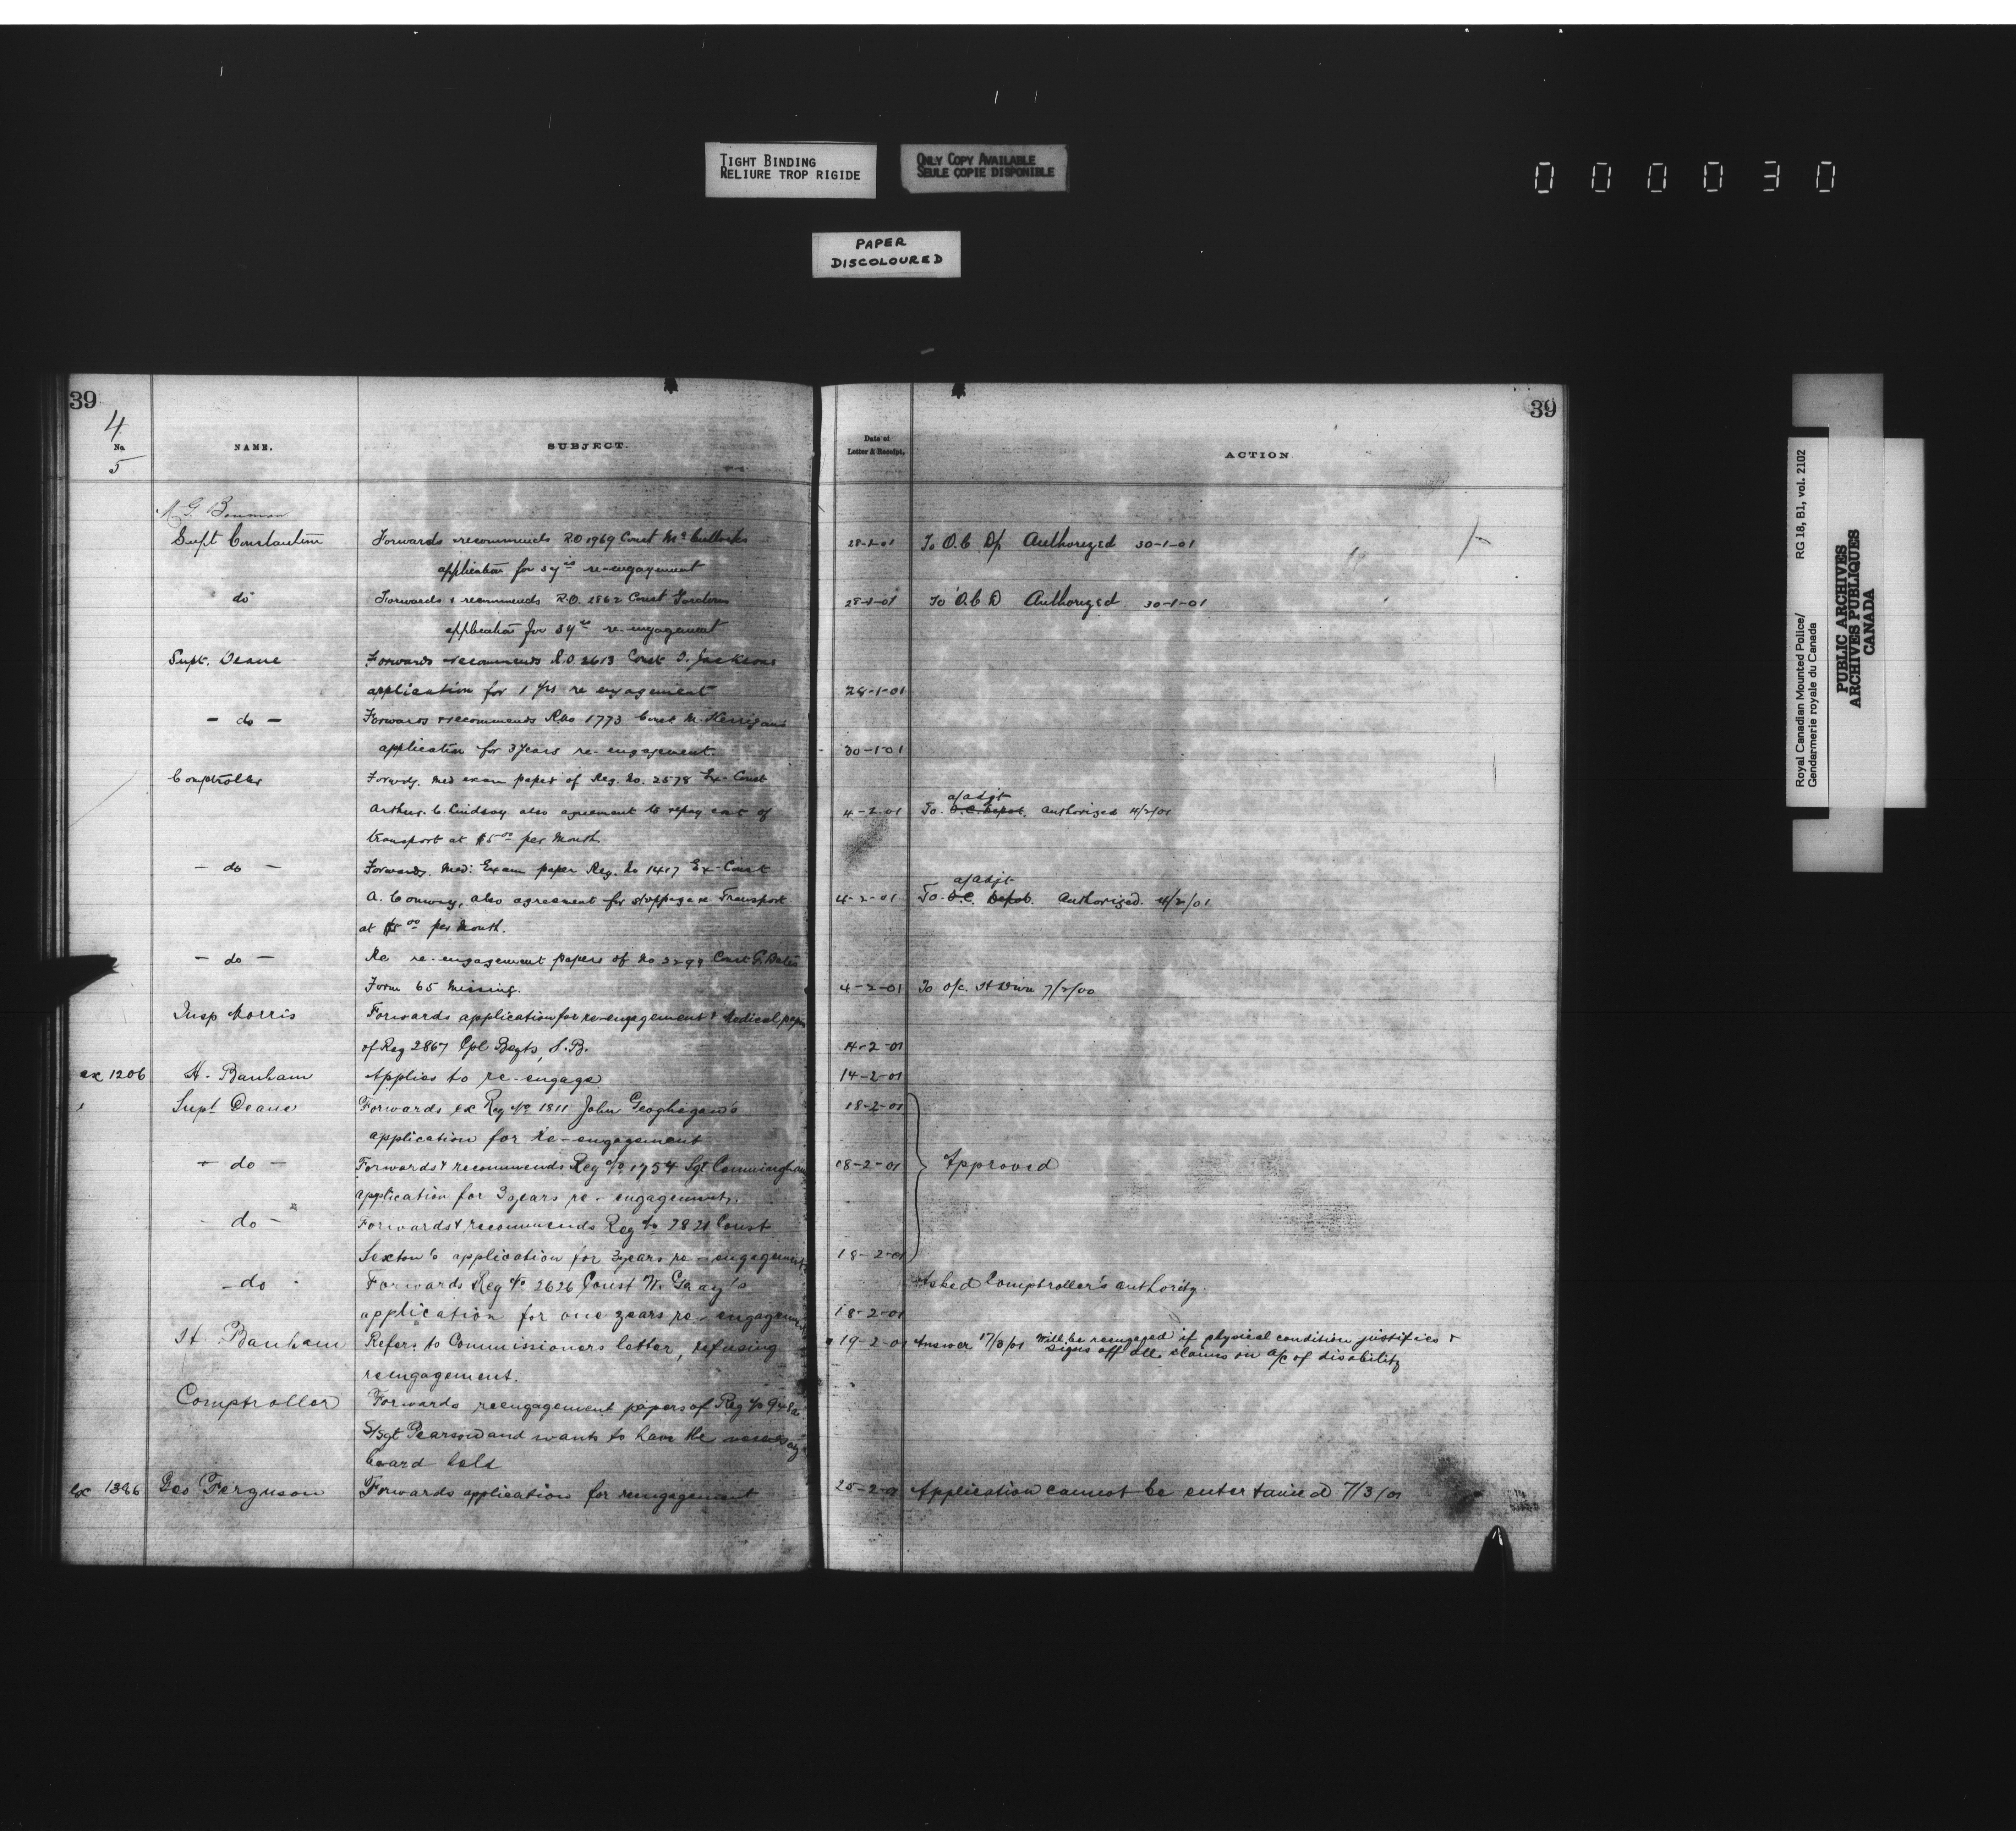 TIGHT BINDING
RELIURE TROP RIGIDE
ONLY COPY AVAILABLE
SEULE COPIE DISPONIBLE
000030
PAPER
DISCOLOURED
39
4
No.
5
NAME.
SUBJECT.
Supt Constantine
Forwards recommends R.O 1969 Const
application for 3 yrs re-engagement
do
Forwards & recommends R.O. 2862 Const Gordons
application for 3 yrs re-engagement
Supt. Deane
Forwards & recommends R.O 2613 Const Jacksons
application for 1 yrs re engagement
- do -
Forwards & recommends RNo 1773 Const M. Kerrigans
application for 3 years re-engagement.
Comptroller
Forwds. med exam paper of Reg. No. 2578 Ex-Const
Arthur. C. Lindsay also agreement to repay cost of
transport at $5.00 per Month
- do -
Forwards. Med: Exam paper Reg. No 1417 Ex-Const
A. Conway, also agreement for stoppage Transport
at $5.00 per Month.
- do -
Re re-engagement papers of No Const G. Bates
Form 65 Missing.
Insp Morris
Forwards application for re-engagement & Medical paper
of Reg 2867 Cpl S.B.
ex 1206 H. Banham
Applies to re-engage
Supt Deane
Forwards ex Reg No 1811 John Geoghegan's
application for re-engagement
- do -
Forwards & recommends Reg No 1754 Sgt Cunningham
application for 3 years re-engagement.
- do -
Forwards & recommends Reg No 2821 Const
Sexton's application for 3 years re-engagement
- do -
Forwards Reg No 2626 Const W. Gray's
application for one years re-engagement
H. Banham
Refers to Commissioners letter, refusing
reengagement.
Comptroller
Forwards reengagement papers of Reg No
S/Sgt Pearson and wants to have the necessary
board held
ex 1386 Geo Ferguson
Forwards application for reengagement
39
Date of
Letter & Receipt.
ACTION
28-1-01 To O.C Authorized 30-1-01
28-1-01 To O.C D Authorized 30-1-01
28-1-01
30-1-01
a/adjt
4-2-01 To O.C. Depot. Authorized 4/2/01
a/adjt
4-2-01 To O.C. Depot. Authorized. 4/2/01
4-2-01 To O/c. H Divn 7/2/00
14-2-01
14-2-01
18-2-01
18-2-01 Approved
18-2-01
Asked Comptroller's authority.
18-2-01
19-2-01 Answer 17/3/01 Will be reengaged if physical condition justifies &
signs off all claims on a/c of disability
25-2-01 Application cannot be entertained 7/3/01
Royal Canadian Mounted Police/
Gendarmerie royale du Canada
RG 18, B1, vol. 2102
PUBLIC ARCHIVES
ARCHIVES PUBLIQUES
CANADA